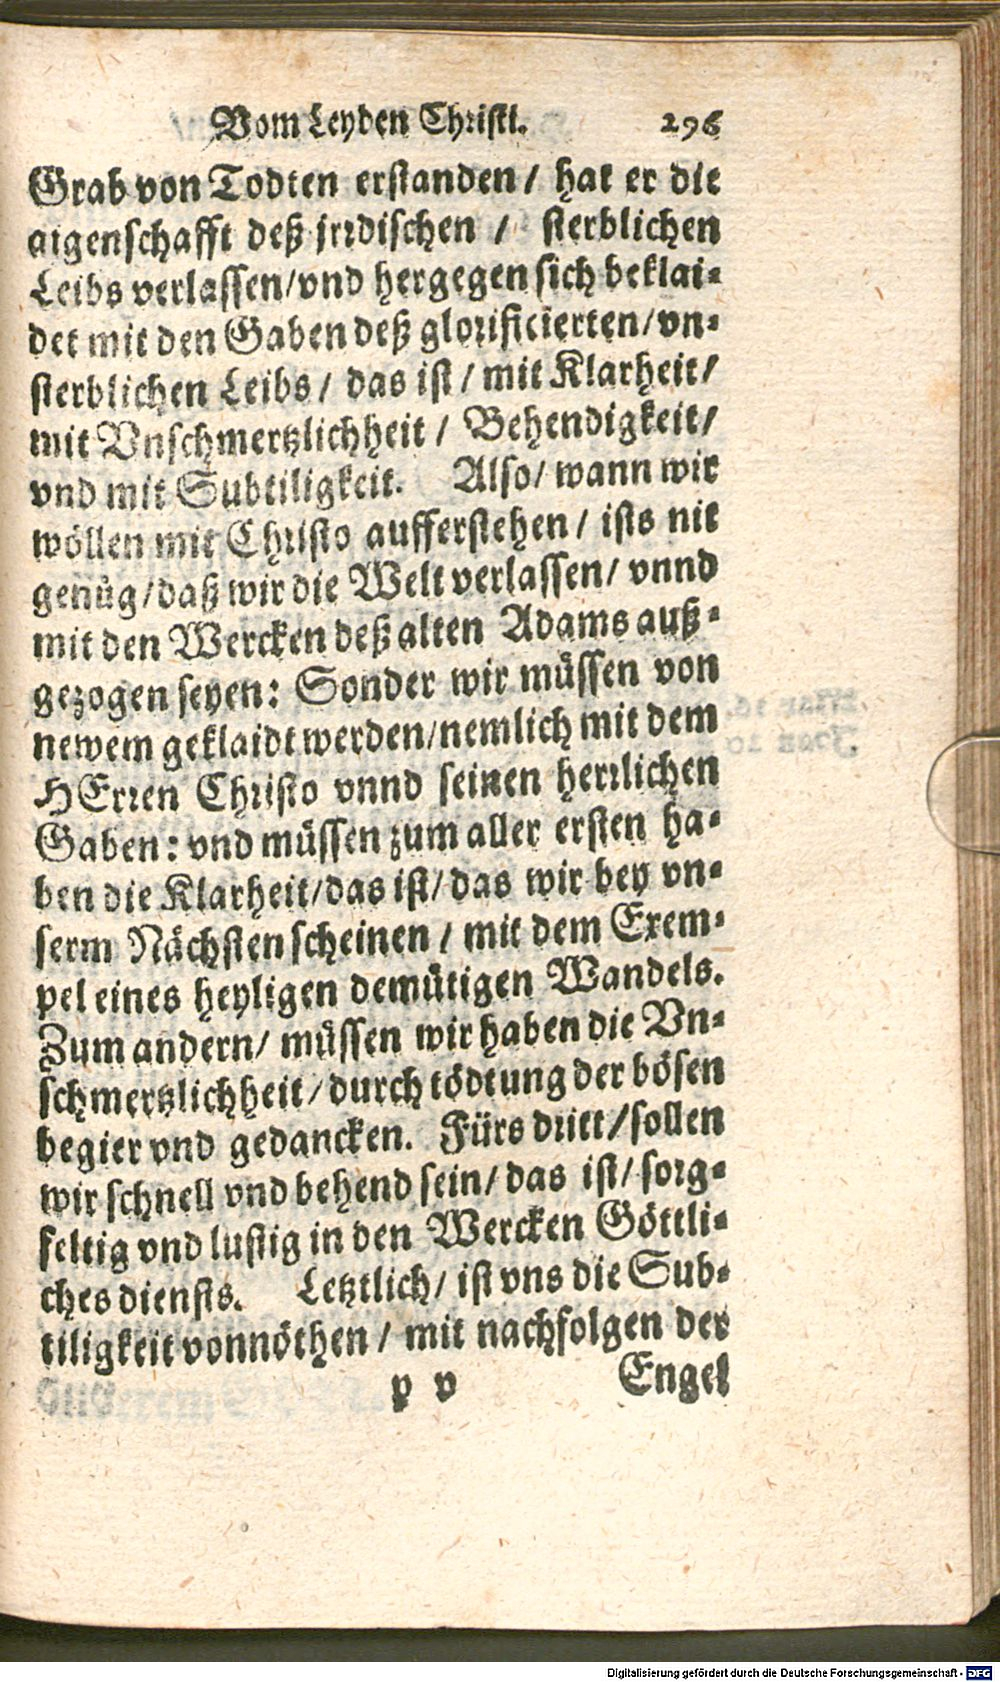 Vom Leyden Christi. 296
Grab von Todten erstanden / hat er die
aigenschafft deß jrrdischen / sterblichen
Leibs verlassen/vnd hergegen sich beklai-
det mit den Gaben deß glorificierten/vn-
sterblichen Leibs / das ist / mit Klarheit/
mit Vnschmertzlichheit / Behendigkeit/
vnd mit Subtiligkeit. Also/ wann wir
wöllen mit Christo aufferstehen / ists nit
genůg/daß wir die Welt verlassen/ vnnd
mit den Wercken deß alten Adams auß-
gezogen seyen: Sonder wir müssen von
newem geklaidt werden/nemlich mit dem
HErren Christo vnnd seinen herrlichen
Gaben: vnd müssen zum aller ersten ha-
ben die Klarheit/das ist/das wir bey vn-
serm Nächsten scheinen / mit dem Exem-
pel eines heyligen demütigen Wandels.
Zum andern/ müssen wir haben die Vn-
schmertzlichheit/durch tödtung der bösen
begier vnd gedancken. Fürs dritt/sollen
wir schnell vnd behend sein/das ist/ sorg-
feltig vnd lustig in den Wercken Göttli-
ches diensts. Letztlich/ ist vns die Sub-
tiligkeit vonnöthen / mit nachfolgen der
p v Engel
Digitalisierung gefördert durch die Deutsche Forschungsgemeinschaft - DFG